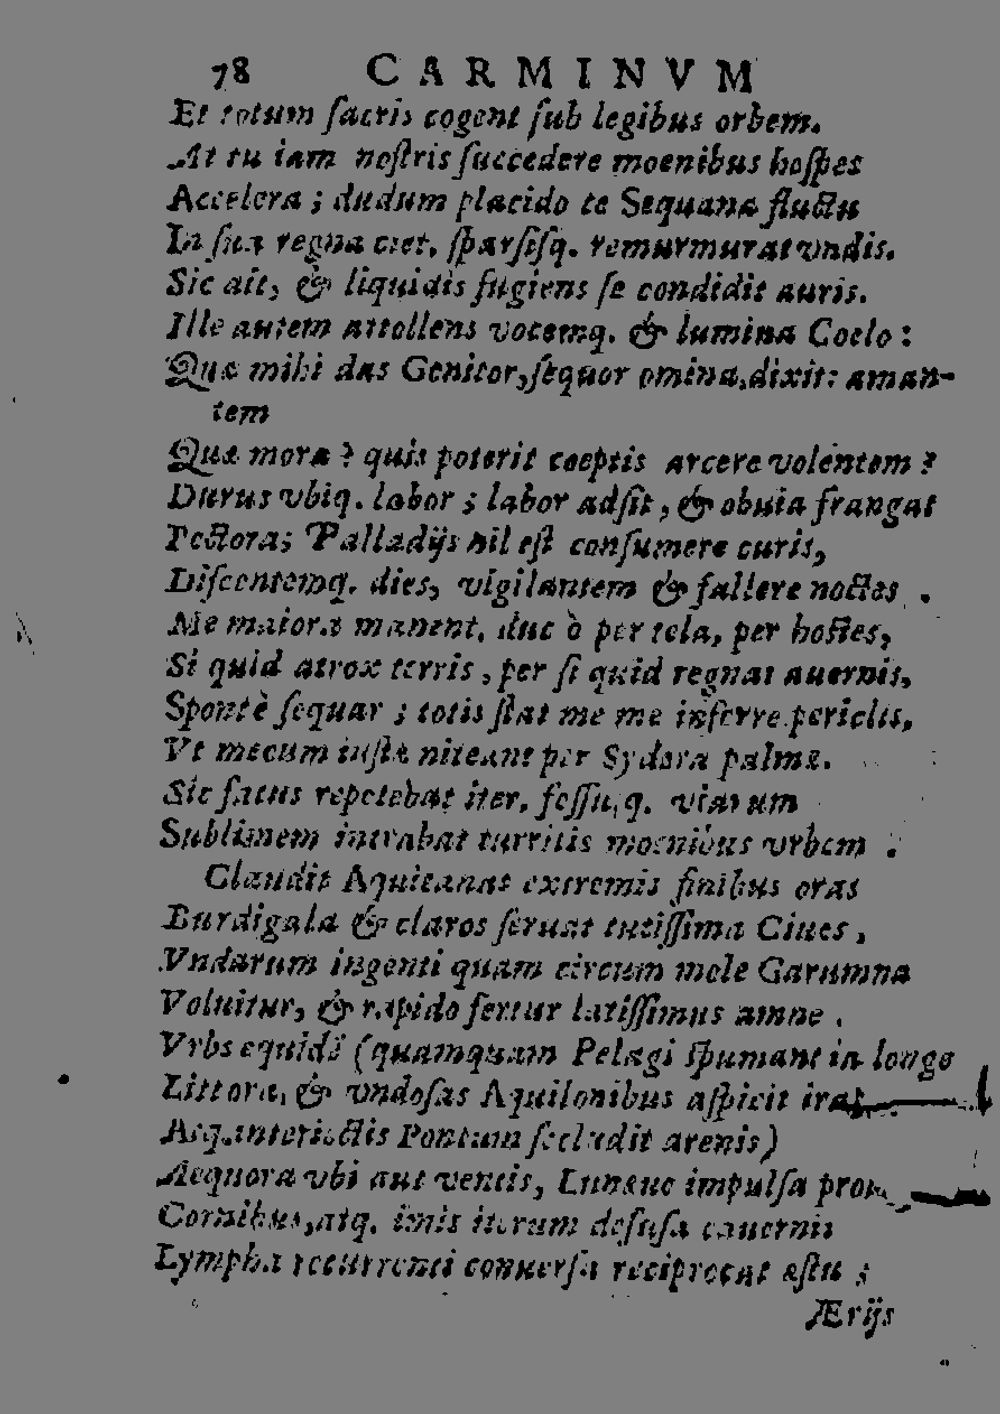 78 CARMINVM
Et totum ſacris cogent ſub legibus orbem.
At tu iam noſtris ſuccedere moenibus hoſpes
Accelera ; dudum placido te Sequana fluctu
In ſua regna ciet, ſparſiſq. remurmurat vndis.
Sic ait, & liquidis fugiens ſe condidit auris.
Ille autem attollens vocemq. & lumina Coelo :
Quæ mihi das Genitor, ſequor omina, dixit: aman-
tem
Quæ mora ? quis poterit coeptis arcere volentem ?
Durus vbiq. labor ; labor adſit, & obuia frangat
Pectora; Palladijs nil eſt conſumere curis,
Diſcentemq. dies, vigilantem & fallere noctes .
Me maiora manent, duc ò per tela, per hoſtes,
Si quid atrox terris, per ſi quid regnat auernis,
Spontè ſequar ; totis ſtat me me inferre periclis,
Vt mecum iuſtæ niteant per Sydera palmæ.
Sic fatus repetebat iter, feſſuſq. viarum
Sublimem intrabat turritis moenibus vrbem .
Claudit Aquitanas extremis finibus oras
Burdigala & claros ſeruat tutiſſima Ciues ,
Vndarum ingenti quam circum mole Garumna
Voluitur, & rapido fertur latiſſimus amne .
Vrbs equidē (quamquam Pelagi ſpumant in longo
Littora, & vndoſas Aquilonibus aſpicit iras
Atq. interiectis Pontum ſecludit arenis)
Aequora vbi aut ventis, Lunæue impulſa
Cornibus, atq. imis iterum defuſa cauernis
Lympha recurrenti conuerſa reciprocat æſtu ;
Ærijs